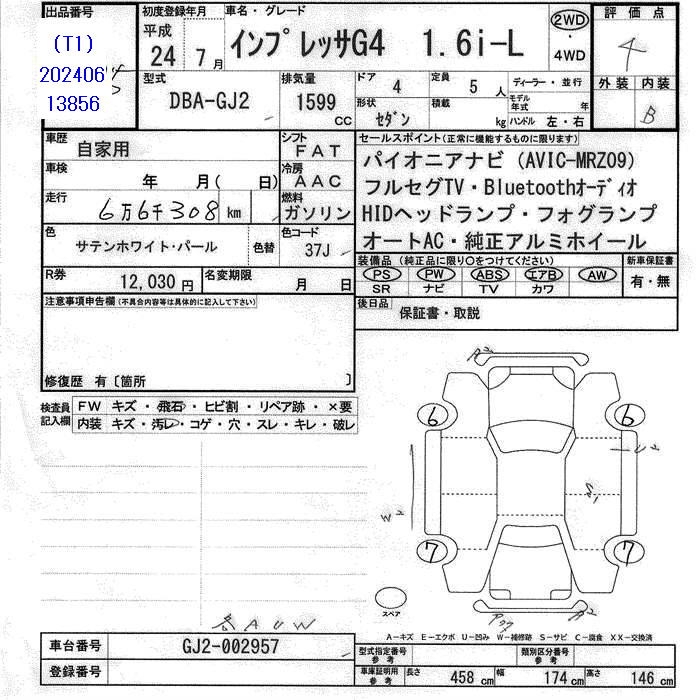 出品番号
(T1)
202406
13856
初度登録年月
平成
24 7月
車名・グレード
インプレッサG4 1.6i-L
2WD
・
4WD
評価点
4
外装 内装
B
型式
DBA-GJ2
排気量
1599
CC
ドア 4
定員 5 人
ディーラー・並行
形状 セダン
積載 kg
モデル年式 年
ハンドル 左・右
車歴 自家用
シフト FAT
車検 年 月( 日)
冷房 AAC
走行 6万6千308 km
燃料 ガソリン
色 サテンホワイト・パール 色替
色コード 37J
R券 12,030 円
名変期限 月 日
セールスポイント(正常に機能するものに限ります)
パイオニアナビ(AVIC-MRZ09)
フルセグTV・Bluetoothオーディオ
HIDヘッドランプ・フォグランプ
オートAC・純正アルミホイール
装備品(純正品に限り○をつけてください)
新車保証書
PS PW ABS エアB AW
SR ナビ TV カワ
有・無
後日品
保証書・取説
注意事項申告欄(不具合内容等は具体的に記入して下さい)
修復歴 有〔箇所 〕
検査員記入欄
FW キズ・飛石・ヒビ割・リペア跡・×要
内装 キズ・汚レ・コゲ・穴・スレ・キレ・破レ
6 6
U2
S1
W2
7 7
スペア
A2
AUW
A-キズ E-エクボ U-凹み W-補修跡 S-サビ C-腐食 XX-交換済
車台番号 GJ2-002957
登録番号
型式指定番号 参考
類別区分番号 参考
車庫証明用 参考
長さ 458 cm 幅 174 cm 高さ 146 cm